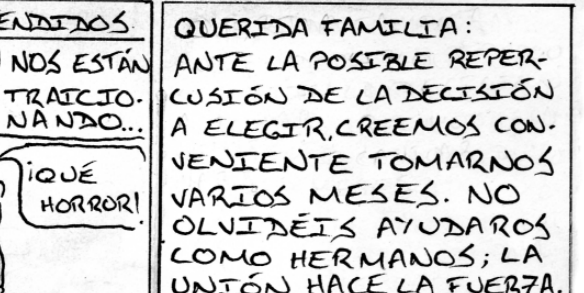 ENDIDOS.
NOS ESTÁN
TRAICIO-
NANDO...
¡QUÉ
HORROR!
QUERIDA FAMILIA:
ANTE LA POSIBLE REPER-
CUSIÓN DE LA DECISIÓN
A ELEGIR, CREEMOS CON-
VENIENTE TOMARNOS
VARIOS MESES. NO
OLVIDÉIS AYUDAROS
COMO HERMANOS; LA
UNIÓN HACE LA FUERZA.